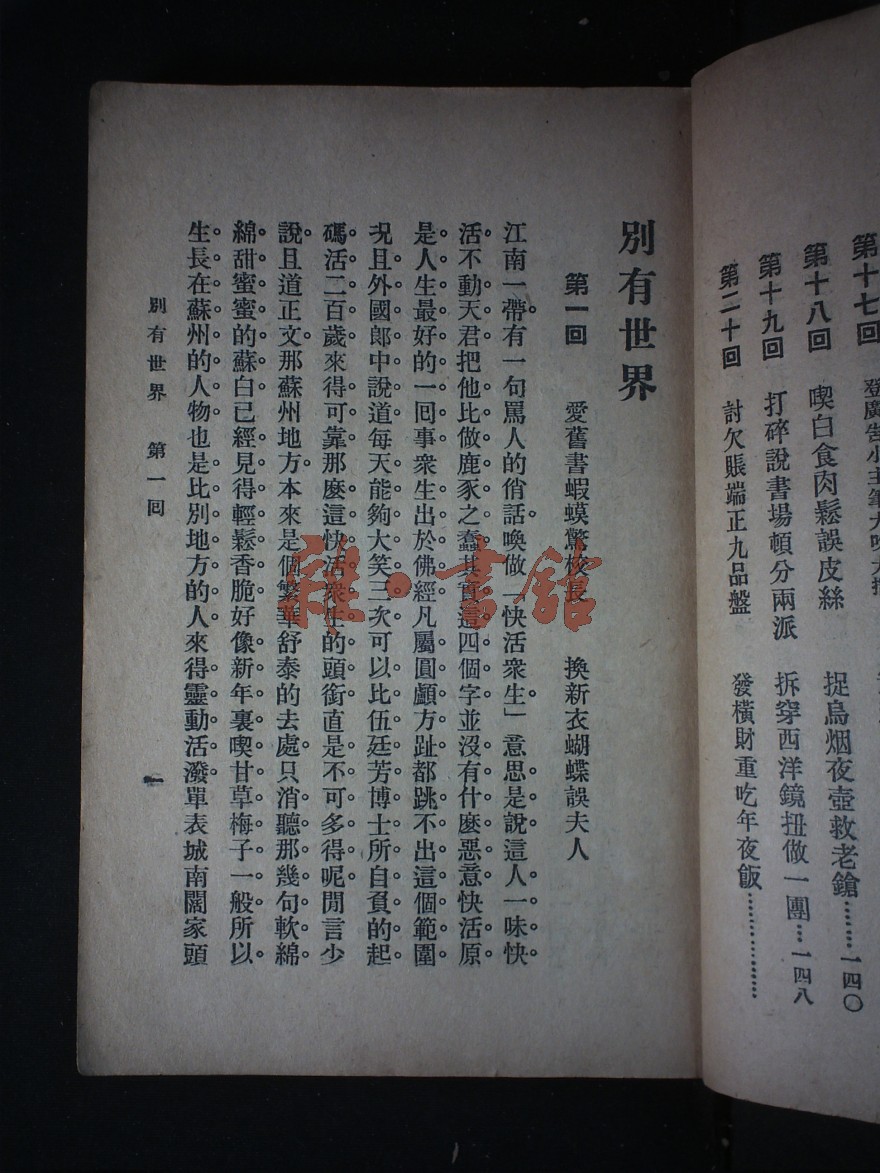 第十七回
第十八回　喫白食肉鬆誤皮絲　捉烏烟夜壺救老鎗………一四〇
第十九回　打碎說書場頓分兩派　拆穿西洋鏡扭做一團…一四八
第二十回　討欠賬端正九品盤　發橫財重吃年夜飯………………
別有世界
第一回　愛舊書蝦蟆驚校長　換新衣蝴蝶誤夫人
江南一帶有一句罵人的俏話喚做「快活衆生」意思是說這人一味快
活不動天君把他比做鹿豕之蠢其實這四個字並沒有什麼惡意快活原
是人生最好的一回事衆生出於佛經凡屬圓顱方趾都跳不出這個範圍
况且外國郞中說道每天能夠大笑三次可以比伍廷芳博士所自負的起
碼活二百歲來得可靠那麼這快活衆生的頭銜直是不可多得呢閒言少
說且道正文那蘇州地方本來是個繁華舒泰的去處只消聽那幾句軟綿
綿甜蜜蜜的蘇白已經見得輕鬆香脆好像新年裏喫甘草梅子一般所以
生長在蘇州的人物也是比別地方的人來得靈動活潑單表城南闊家頭
別有世界　第一回　一
雜·書館